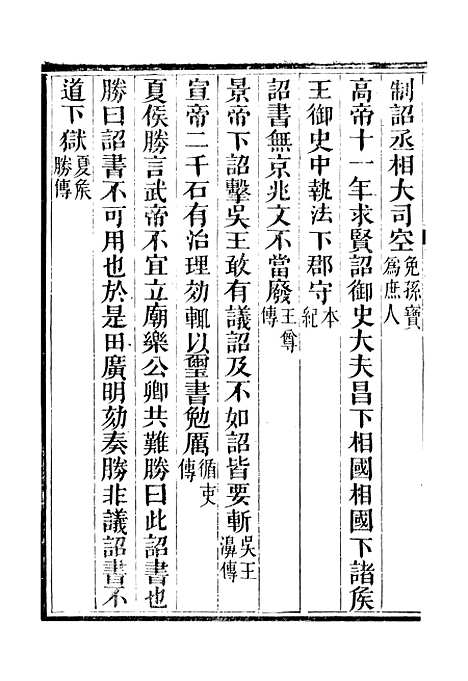 制詔丞相大司空免孫寶爲庶人
高帝十一年求賢詔御史大夫昌下相國相國下諸矦
王御史中執法下郡守本紀
詔書無京兆文不當廢王尊傳
景帝下詔擊吳王敢有議詔及不如詔皆要斬吳王濞傳
宣帝二千石有治理効輒以璽書勉厲循吏傳
夏侯勝言武帝不宜立廟樂公卿共難勝曰此詔書也
勝曰詔書不可用也於是田廣明劾奏勝非議詔書不
道下獄夏矦勝傳